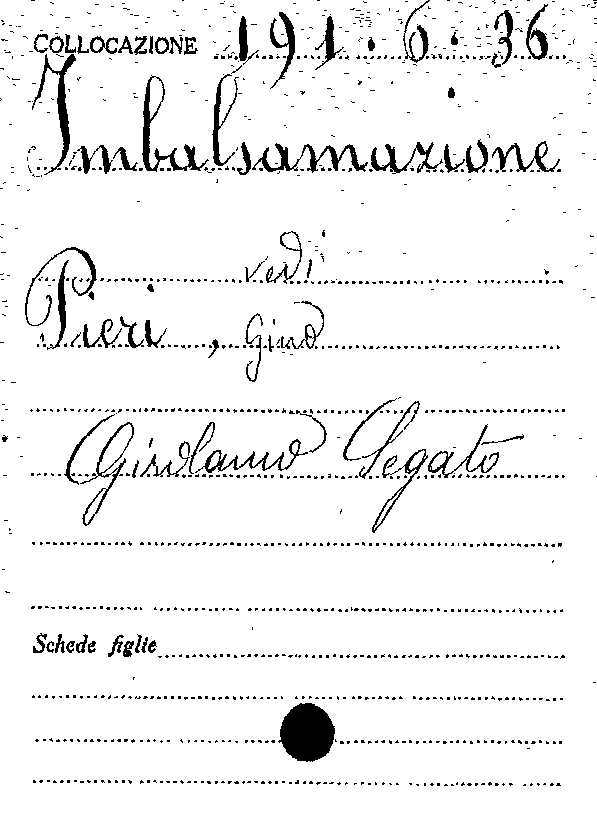 COLLOCAZIONE 191.6.36
Imbalsamazione
vedi
Pieri, Gino
Girolamo Segato
Schede figlie